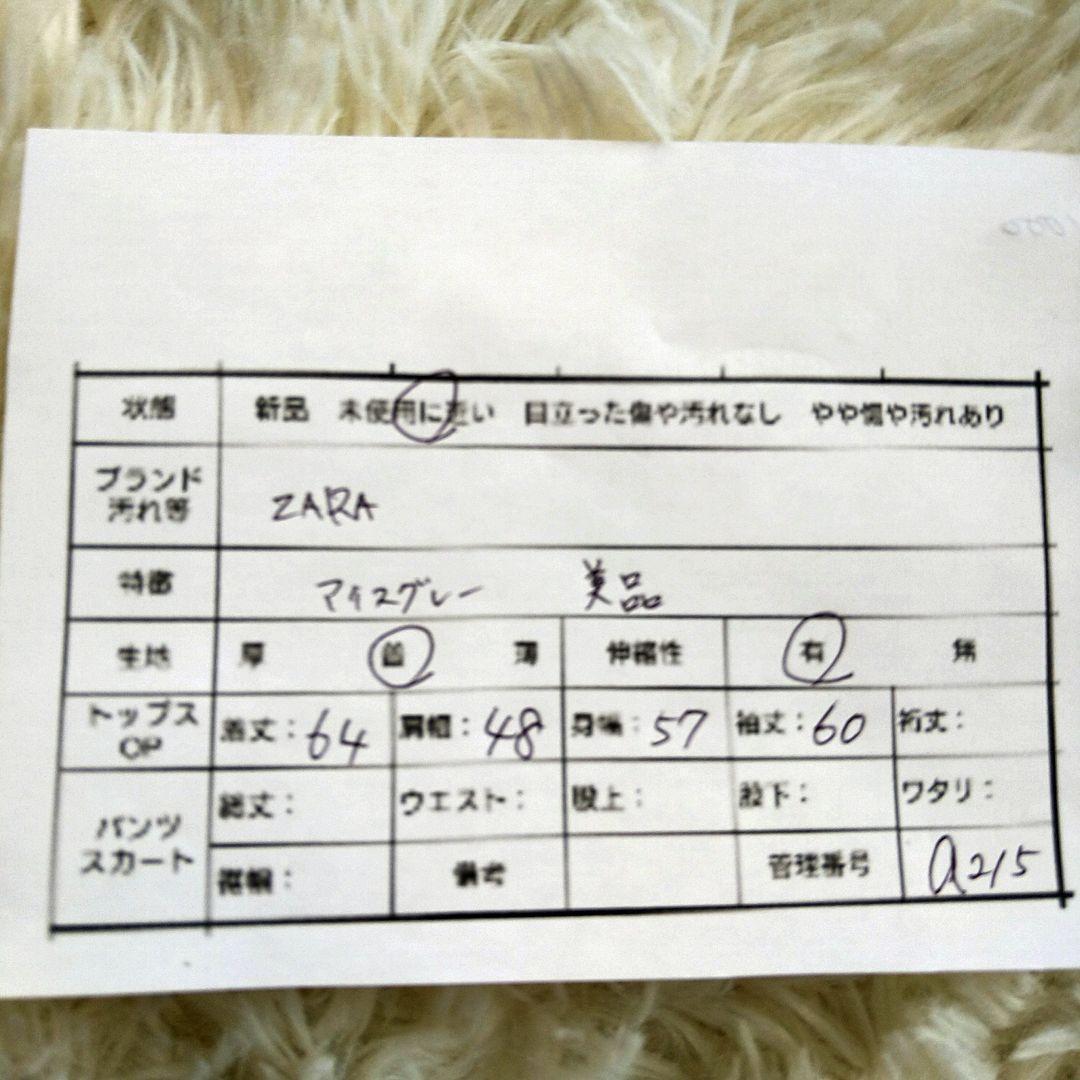 状態 新品 未使用に近い 目立った傷や汚れなし やや傷や汚れあり
ブランド
汚れ等
ZARA
特徴 アイスグレー 美品
生地 厚 普 薄 伸縮性 有 無
トップス
OP
着丈：64 肩幅：48 身幅：57 袖丈：60 裄丈：
パンツ
スカート
総丈： ウエスト： 股上： 股下： ワタリ：
裾幅： 備考 管理番号 a215